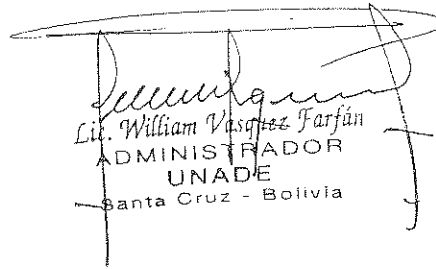 Lic. William Vasquez Farfán
ADMINISTRADOR
UNADE
Santa Cruz - Bolivia